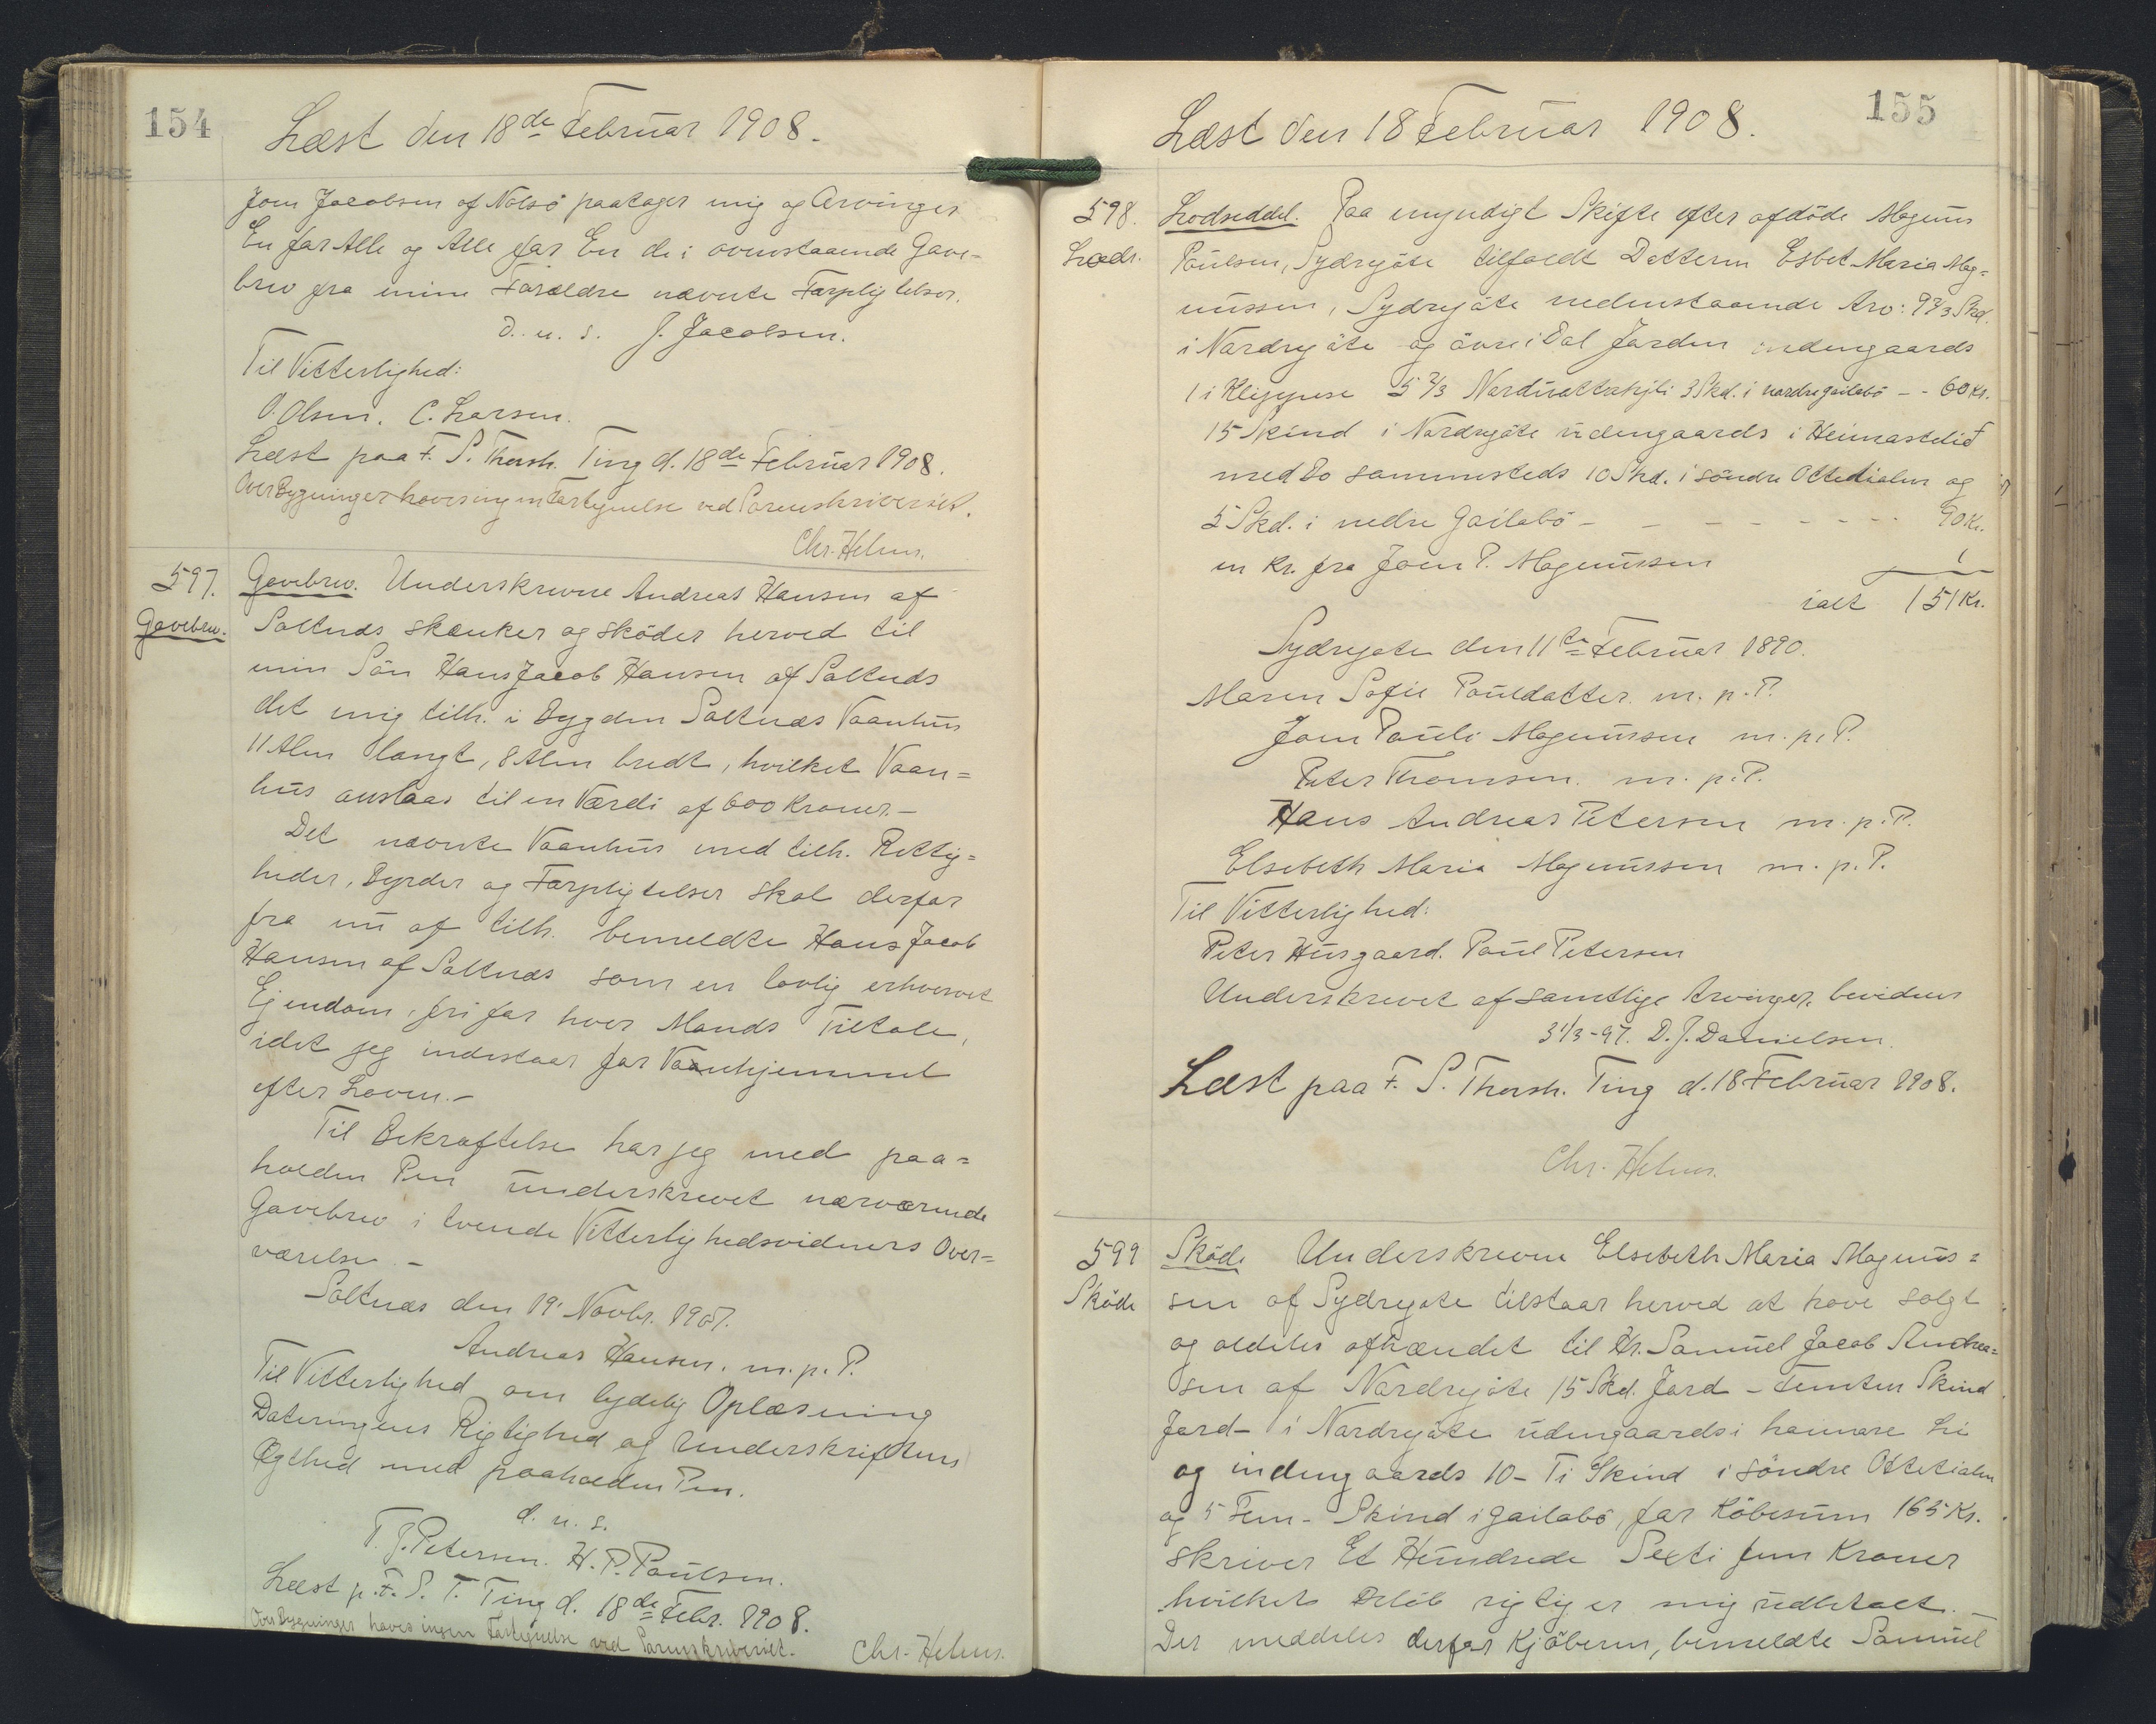 154
Læst den 18de Februar 1908.
Joen Jacobsen af Nolsö paatager mig og Arvinger
En for Alle og Alle for En de i ovenstaaende Gave-
brev fra mine Forældre nævnte Forpligtelser.
d. u. s. J. Jacobsen.
Til Vitterlighed:
O. Olsen. C. Larsen.
Læst paa F. S. Thorsh. Ting d. 18de Februar 1908.
Over Bygninger haves ingen Fortegnelse ved Sorenskriveriet.
Chr. Helms.
597. Gavebrev. Underskrevne Andreas Hansen af
Gavebrev. Saltnæs skænker og sköder herved til
min Sön Hans Jacob Hansen af Saltnæs
det mig tilh. i Bygden Saltnæs Vaanhus
11 Alen langt, 8 Alen bredt, hvilket Vaan=
hus anslaas til en Værdi af 600 Kroner.-
Det nævnte Vaanhus med tilh. Rettig=
heder, Byrder og Forpligtelser skal derfor
fra nu af tilh. bemeldte Hans Jacob
Hansen af Saltnæs som en lovlig erhvervet
Ejendom, fri for hver Mands Tiltale,
idet jeg indestaar for Vaanhjemmel
efter Loven.-
Til Bekræftelse har jeg med paa=
holden Pen underskrevet nærværende
Gavebrev i tvende Vitterlighedsvidners Over=
værelse.-
Saltnæs den 19' Novbr. 1907.
Andreas Hansen. m. p. P.
Til Vitterlighed om lydelig Oplæsning
Dateringens Rigtighed og Underskriftens
Ægthed med paaholden Pen.
d. u. s.
T. J. Petersen. H. P. Poulsen.
Læst p. F. S. T. Ting d. 18de Febr. 1908.
Over Bygninger haves ingen Fortegnelse ved Sorenskriveriet. Chr. Helms.
155
Læst den 18 Februar 1908.
598. Lodseddel. Paa myndigt Skifte efter afdöde Magnus
Lodr. Poulsen, Sydregöte tilfaldt Datteren Esbet Maria Mag=
nussen, Sydregöte nedenstaaende Arv: 9 2/3 Skd.
i Nordregöte og övre i Dal Jorden indengaards
1 i Kleppuse 5 2/3 Norduattahyli 3 Skd. i nordre gailabö - - 60 Kr.
15 Skind i Nordregöte udengaards i Heimastelid
med Do sammesteds 10 Skd. i söndre Ottetialen og
5 Skd. i nedre Gailabö - - - - - - - - 90 Kr.
en Kr. fra Joen P. Magnussen 1
ialt 151 Kr.
Sydregöte den 11te Februar 1890.
Maren Sofie Poulsdatter. m. p. P.
Joen Pauli Magnussen m. p. P.
Peter Thomsen. m. p. P.
Hans Andreas Petersen m. p. P.
Elsebeth Maria Magnussen m. p. P.
Til Vitterlighed:
Peter Husgaard. Poul Petersen
Underskrevet af samtlige Arvinger, bevidnes
31/3-97. D. J. Danielsen.
Læst paa F. S. Thorsh. Ting d. 18 Februar 1908.
Chr. Helms.
599 Sköde Underskrevne Elsebeth Maria Magnus=
Sköde sen af Sydregöte tilstaar herved at have solgt
og aldeles afhændet til Hr. Samuel Jacob Andrea=
sen af Nordregöte 15 Skd. Jord - Femten Skind
Jord - i Nordregöte udengaards i haimare Li
og indengaards 10 - Ti Skind i söndre Ottetialen
og 5 Fem - Skind i Gailabö, for Köbesum 165 Kr.
skriver Et Hundrede Sexti fem Kroner
hvilket Belöb rigtig er mig udbetalt.-
Der meddeles derfor Kjöberen, bemeldte Samuel